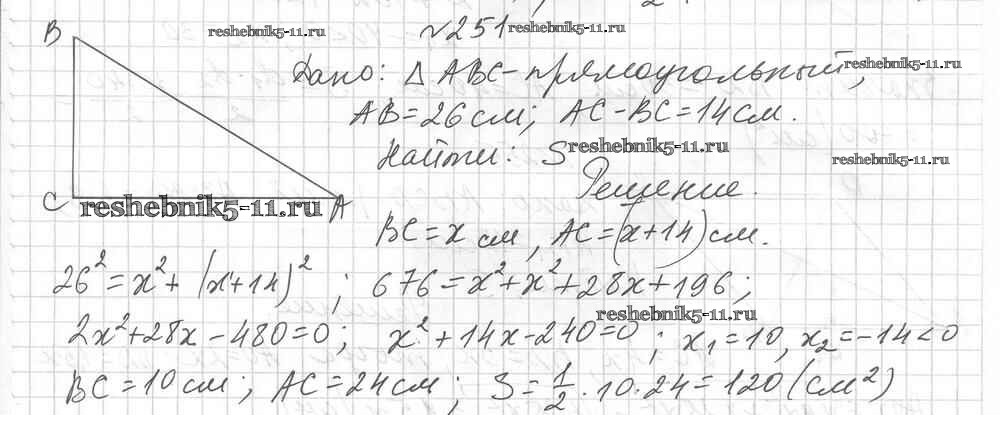 reshebnik5-11.ru
№251 reshebnik5-11.ru
B
Дано: △ABC-прямоугольный, reshebnik5-11.ru
AB=26см; AC-BC=14см.
Найти: S reshebnik5-11.ru
reshebnik5-11.ru
Решение.
C reshebnik5-11.ru A
BC=x см, AC=(x+14)см.
26²=x²+(x+14)²; 676=x²+x²+28x+196;
reshebnik5-11.ru
2x²+28x-480=0; x²+14x-240=0; x₁=10, x₂=-14<0
BC=10см; AC=24см; S=1/2·10·24=120(см²)